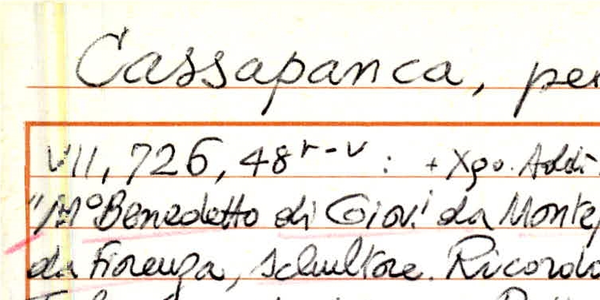 Cassapanca, per
VII, 726, 48 r-v : + Xpo. Addì
"M° Benedetto di Giovi da Monte
da Fiorenza, schultore. Ricordo